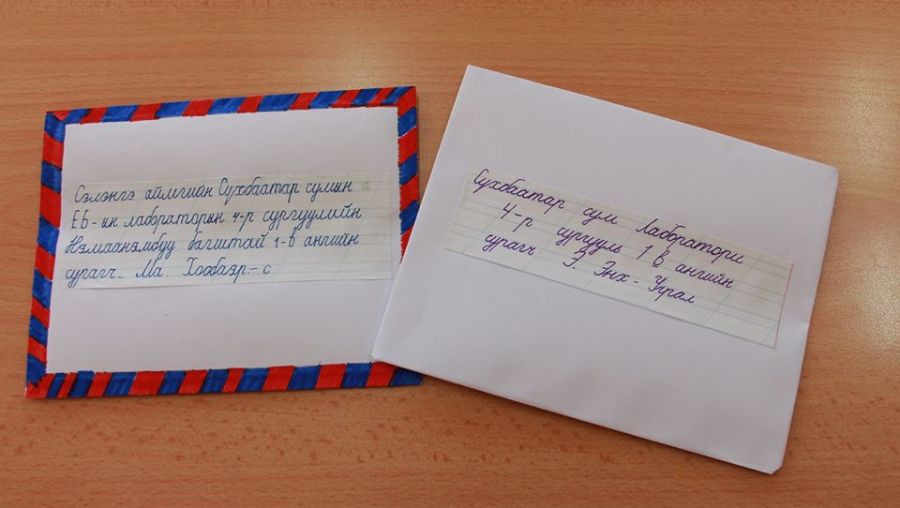 Сэлэнгэ аймгийн Сухбаатар сумын
ЕБ-ын лаборатори 4-р сургуулийн
Нэмаанэмбуу багштай 1-в ангийн
сурагч Ма. -с
Сухбаатар сум Лаборатори
4-р сургууль 1 в ангийн
сурагч Э. Энх-Учрал